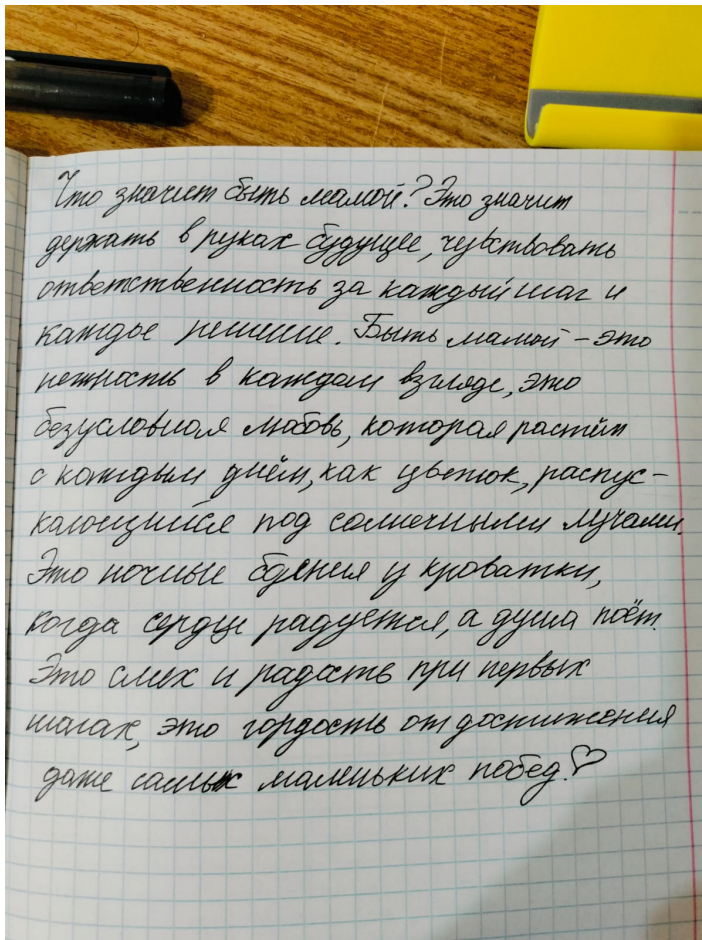 Что значит быть мамой? Это значит
держать в руках будущее, чувствовать
ответственность за каждый шаг и
каждое решение. Быть мамой – это
нежность в каждом взгляде, это
безусловная любовь, которая растёт
с каждым днём, как цветок, распус-
кающийся под солнечными лучами.
Это ночные бдения у кроватки,
когда сердце радуется, а душа поёт.
Это смех и радость при первых
шагах, это гордость от достижения
даже самых маленьких побед.♡